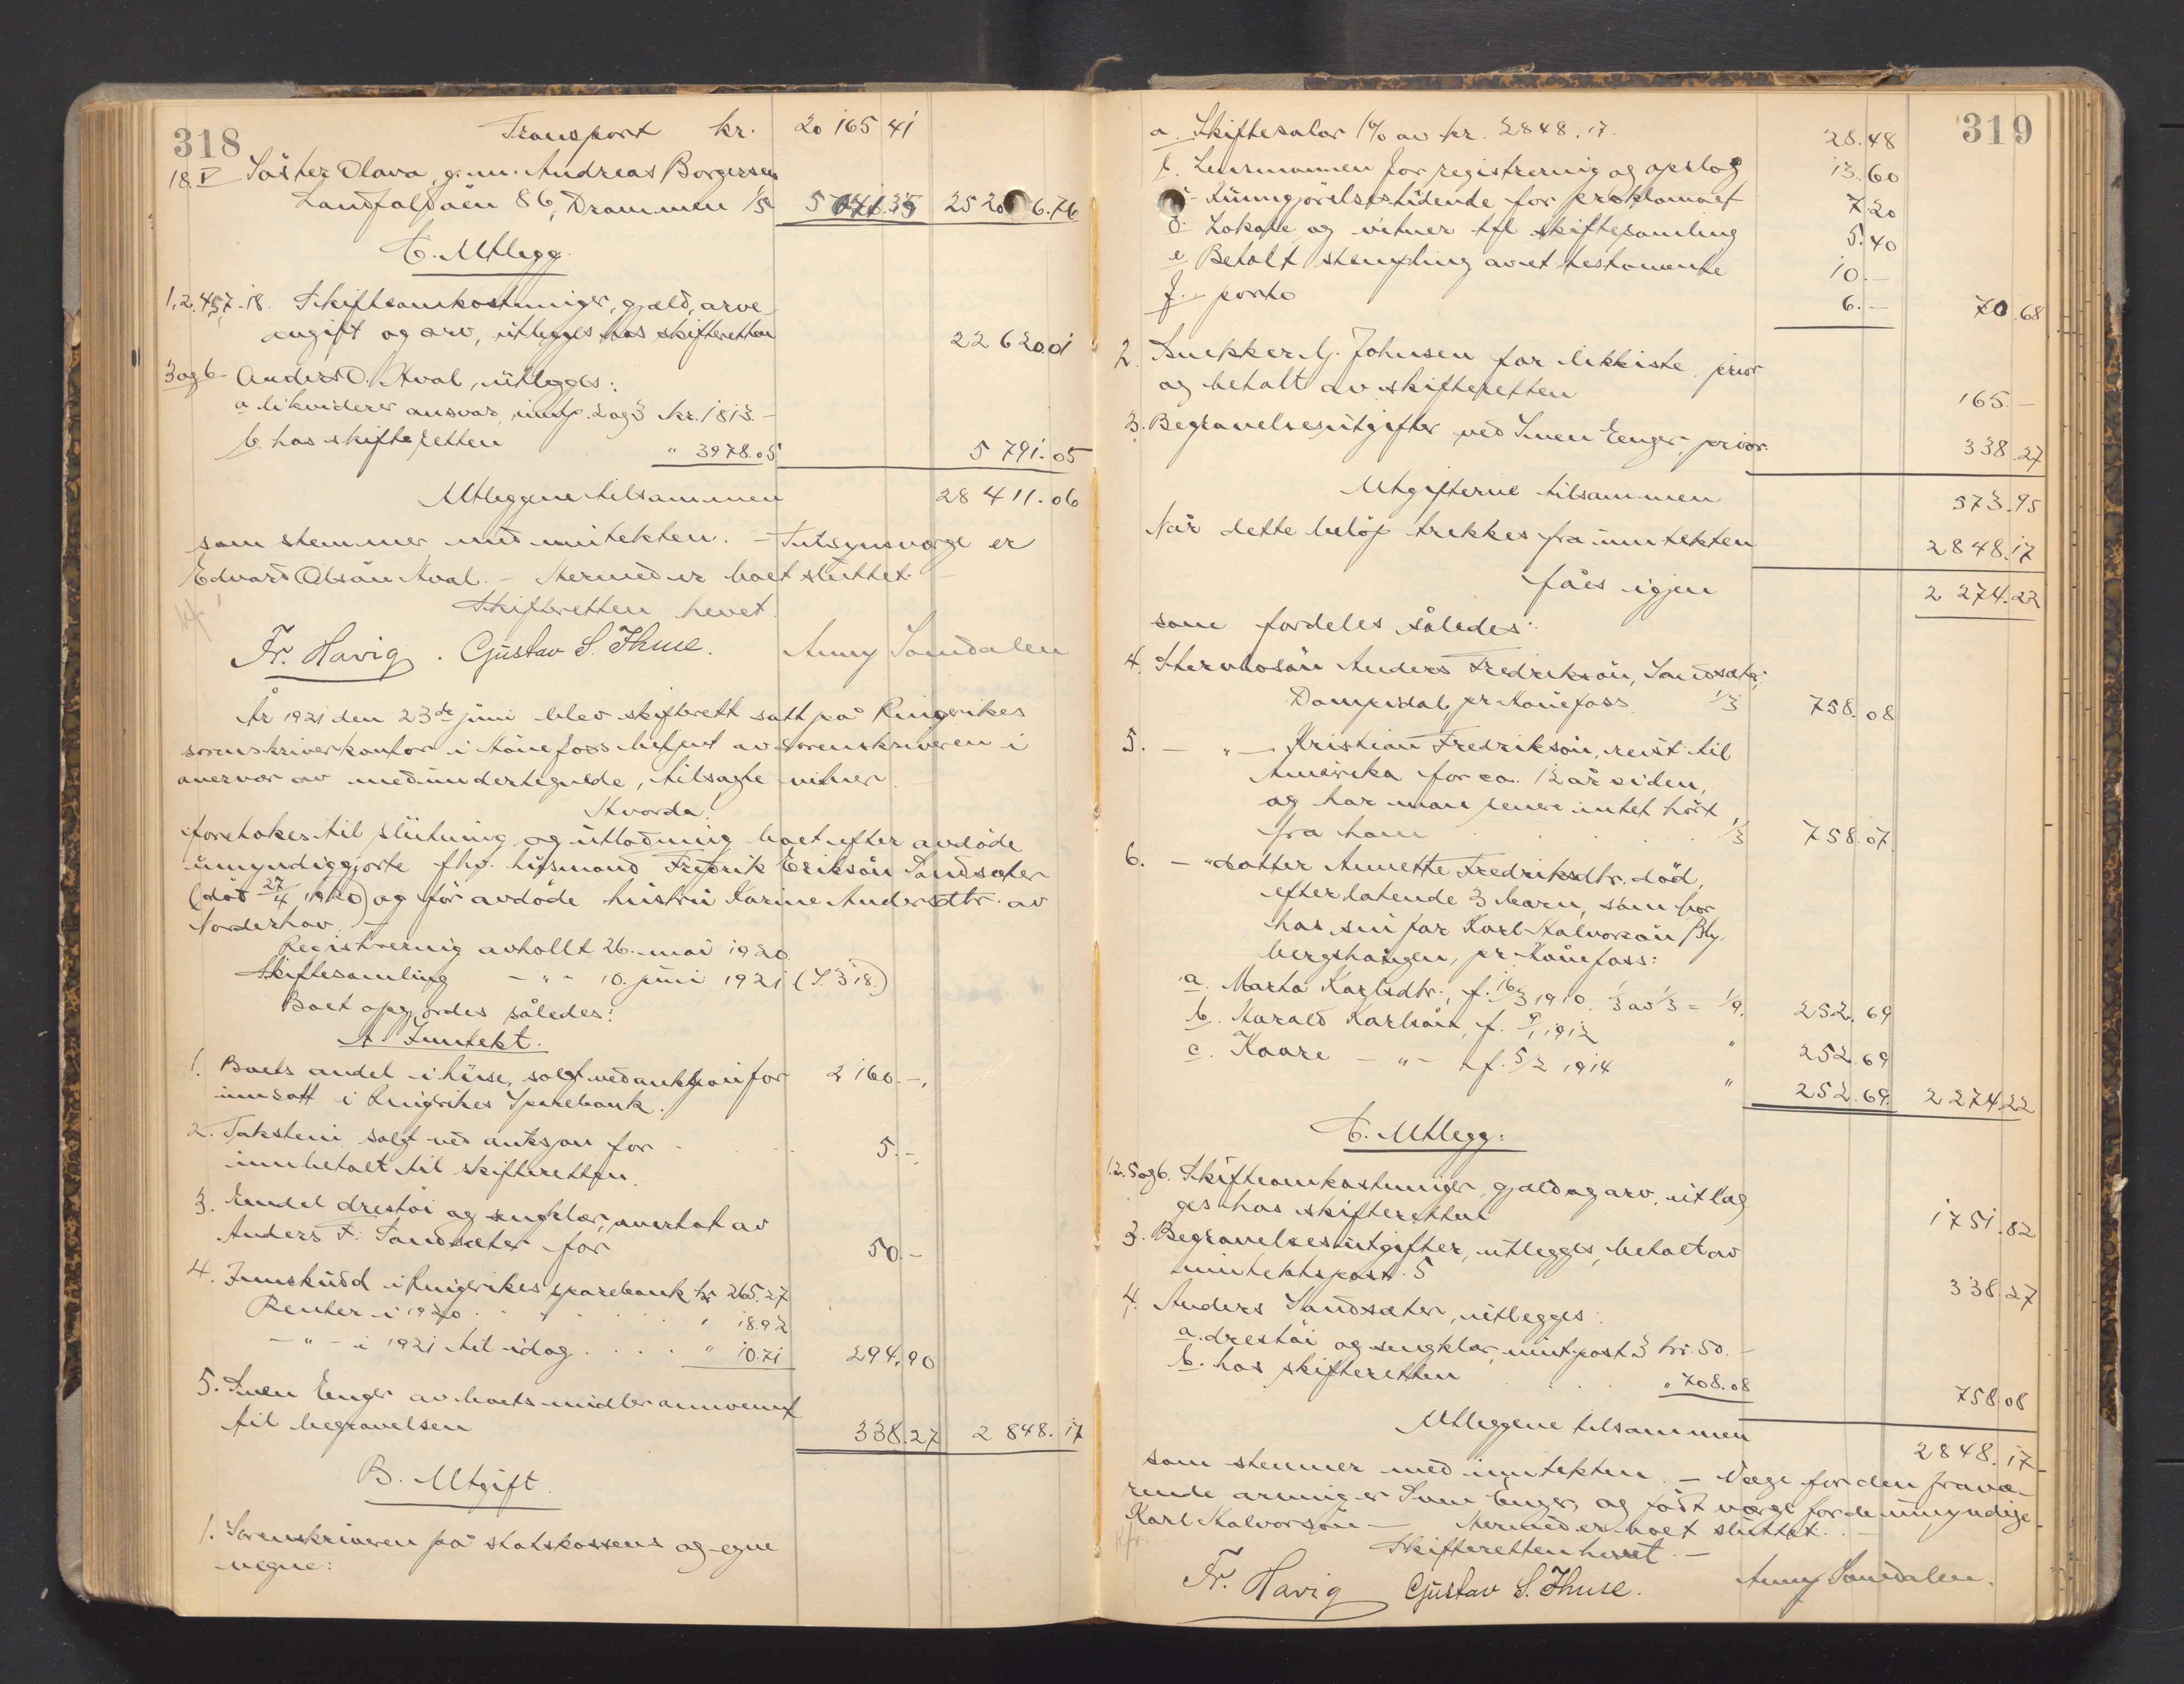 318
Transport kr. 20 165 41
18. V Söster Olava, g. m. Andreas Borgersen
Landfaldöen 86, Drammen 1/5 5 041.35 25 206.76
C. Utlegg.
1, 2, 4, 5, 7-18. Skifteomkostninger, gjæld, arve-
avgift og arv, utlegges hos skifteretten 22 620.01
3 og 6 Anders O. Hval, utlegges:
a. likviderer ansvar, inntp. 2 og 3 kr. 1813.-
b. hos skifteretten " 3978.05 5 791.05
Utleggene tilsammen 28 411.06
som stemmer med inntekten. - Tilsynsverge er
Edvard Olsön Hval. - Hermed er boet sluttet. -
Skifteretten hevet.
Fr. Havig. Gustav S. Thue. Anny Somdalen
År 1921 den 23de juni blev skifterett satt på Ringerikes
sorenskriverkontor i Hönefoss betjent av sorenskriveren i
overvær av medundertegnede, tilsagte vitner.
Hvorda:
foretokes til slutning og utlodning boet efter avdöde
umyndiggjorte fhv. husmand Fredrik Eriksön Sandsæter
(död 27/4 1920) og för avdöde hustru Karine Andersdtr. av
Norderhov. -
Registrering avholt 26. mai 1920
Skiftesamling - " - 10. juni 1921 (S. 318.)
Boet opgjordes således:
A. Inntekt.
1. Boets andel i huse, solgt ved auktion for 2 160.-,
innsatt i Ringerikes Sparebank.
2. Taksten solgt ved auksjon for . . . 5.-,
innbetalt til skifteretten.
3. Endel drestöi og sengklær, overtat av
Anders F. Sandsæter for 50.-
4. Innskudd i Ringerikes sparebank kr. 265.27
Renter i 1920 . . . . . " 18.92
- " - i 1921 til idag . . . . " 10.71 294.90
5. Sven Enger av boets midler annvennt
til begravelsen 338.27 2 848.17
B. Utgift.
1. Sorenskriveren på statskassens og egne
vegne:
319
a. Skiftesalær 1% av kr. 2848.17. 28.48
b. Lensmannen for registrering og opslag 13.60
c. Kunngjörelsestidende for proklamaet 7.20
d. Lokale og vitner til skiftesamling 5.40
e. Betalt stempling av et testamente 10.-
f. porto 6.- 70.68
2. Snekker G. Johnsen for likkiste, prior
og betalt av skifteretten 165.-
3. Begravelsesutgifter ved Sven Enger, prior. 338.27
Utgifterne tilsammen 573.95
Når dette belöp trekkes fra inntekten 2848.17
fåes igjen 2 274.22
som fordeles således:
4. Stervbosön Anders Fredriksön, Sandsæter,
pr. Hönefoss 1/3 758.08
5. - " - Kristian Fredriksön, reist til
Amerika for ca. 12 år siden,
og har man senere intet hört
fra ham . . . 1/3 758.07
6. - " datter Annette Fredriksdtr. död,
efterlatende 3 barn, som bor
hos sin far Karl Halvorsön, Bly-
bergshaugen, pr. Hönefoss:
a. Marta Karlsdtr., f. 16/3 1910. 1/3 av 1/3 = 1/9. 252.69
b. Harald Karlsön, f. 9/1 1912 " 252.69
c. Kaare - " - f. 5/2 1914 " 252.69. 2 274.22
C. Utlegg:
1, 2, 5 og 6. Skifteomkostninger, gjæld og arv, utleg-
ges hos skifteretten 1751.82
3. Begravelsesutgifter, utlegges, betalt av
inntektspost 5 338.27
4. Anders Sandsæter, utlegges:
a. drestöi og sengklær, inntpost 3 kr. 50.-
b. hos skifteretten . . . " 708.08 758.08
Utleggene tilsammen 2848.17
som stemmer med inntekten. - Verge for den fravæ-
rende arving er Sven Enger, og född verge for de umyndige
Karl Halvorsön - Hermed er boet sluttet. -
Skifteretten hevet. -
Fr. Havig Gustav S. Thue. Anny Somdalen.